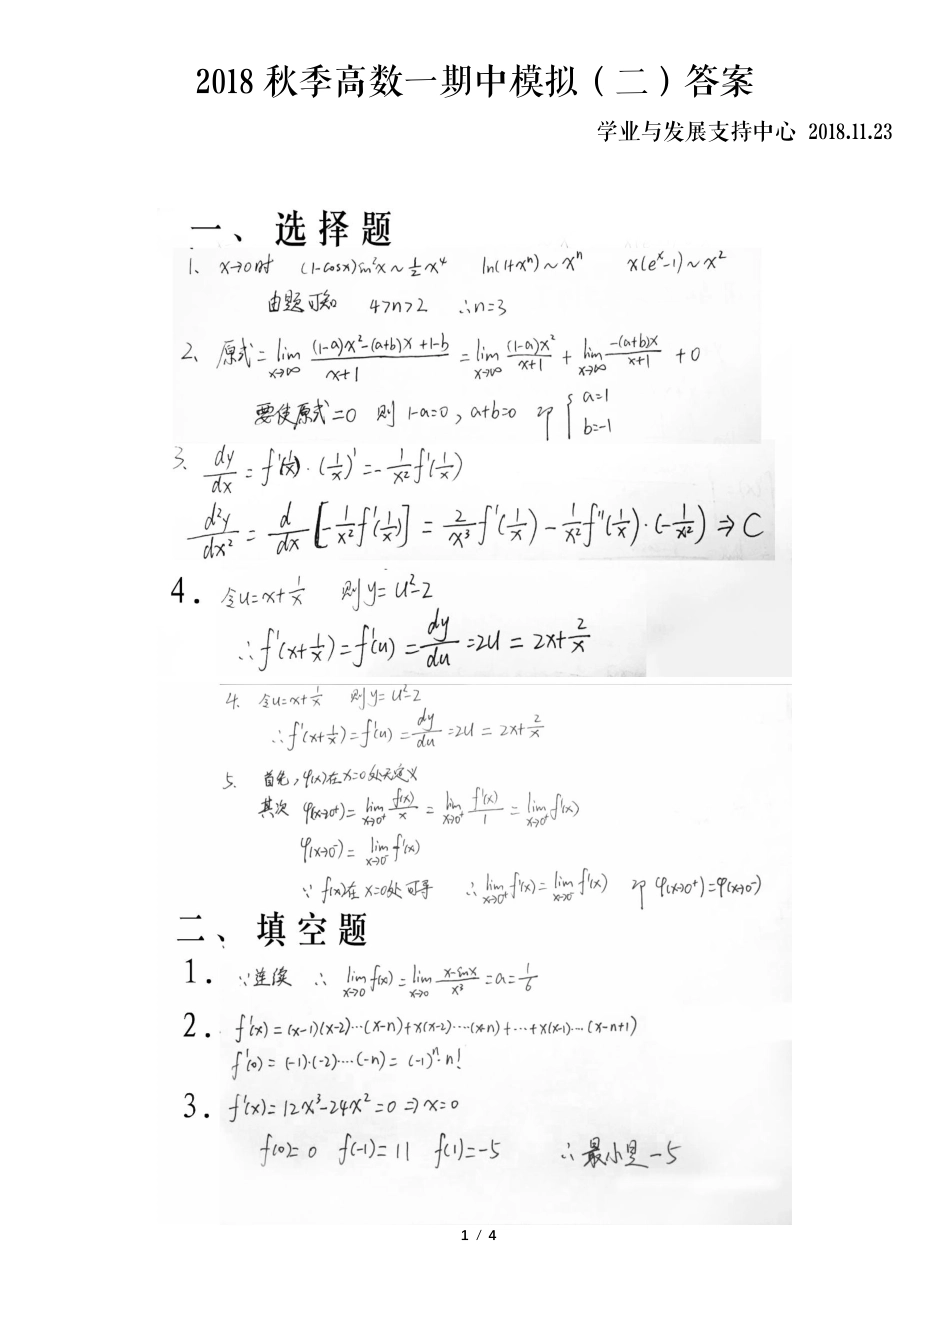 2018 秋季高数一期中模拟（二）答案
学业与发展支持中心 2018.11.23
一、选择题
1、 x→0时 (1-cosx)sin²x ~ ½x⁴ ln(1+xⁿ) ~ xⁿ x(eˣ-1) ~ x²
由题可知 4>n>2 ∴n=3
2、 原式= lim_{x→∞} ((1-a)x²-(a+b)x+1-b)/(x+1) = lim_{x→∞} (1-a)x²/(x+1) + lim_{x→∞} -(a+b)x/(x+1) + 0
要使原式=0 则 1-a=0, a+b=0 即 { a=1 b=-1
3、 dy/dx = f'(1/x)·(1/x)' = -1/x² f'(1/x)
d²y/dx² = d/dx [-1/x² f'(1/x)] = 2/x³ f'(1/x) - 1/x² f''(1/x)·(-1/x²) ⇒ C
4. 令u=x+1/x 则y=u²-2
∴f'(x+1/x)=f'(u)=dy/du=2u=2x+2/x
4、 令u=x+1/x 则y=u²-2
∴f'(x+1/x)=f'(u)=dy/du=2u=2x+2/x
5、 首先，φ(x)在x=0处无定义
其次 φ(x→0⁺)= lim_{x→0⁺} f(x)/x = lim_{x→0⁺} f'(x)/1 = lim_{x→0⁺} f'(x)
φ(x→0⁻)= lim_{x→0⁻} f'(x)
∵ f(x)在x=0处可导 ∴ lim_{x→0⁺} f'(x)= lim_{x→0⁻} f'(x) 即 φ(x→0⁺)=φ(x→0⁻)
二、填空题
1. ∵连续 ∴ lim_{x→0} f(x)= lim_{x→0} (x-sinx)/x³ =a=1/6
2. f'(x)=(x-1)(x-2)…(x-n)+x(x-2)…(x-n)+…+x(x-1)…(x-n+1)
f'(0)=(-1)·(-2)…(-n)=(-1)ⁿ·n!
3. f'(x)=12x³-24x²=0⇒x=0
f(0)=0 f(-1)=11 f(1)=-5 ∴最小是-5
1 / 4